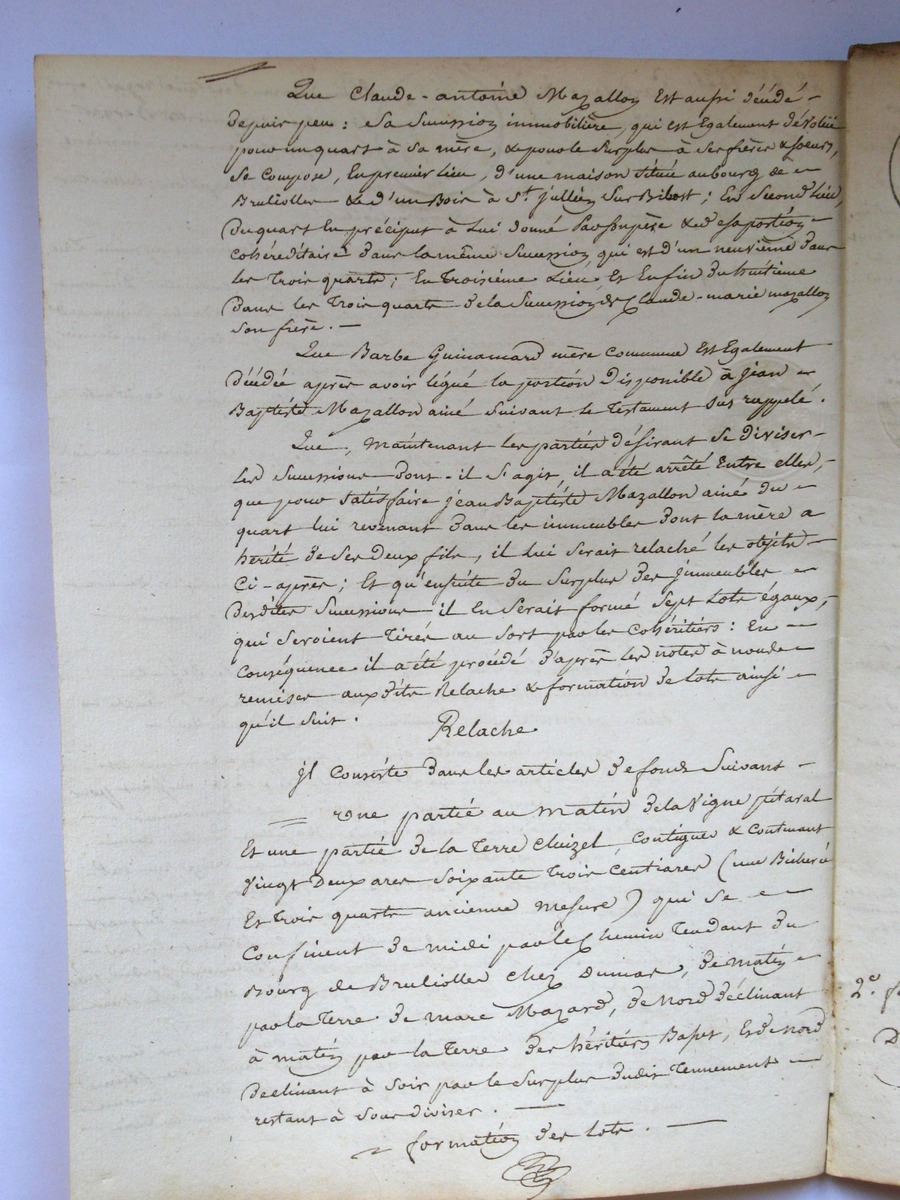 Que Claude-antoine Mazallon Est aussi décédé
depuis peu : et sa Succession immobilière, qui est Egalement dévolüe
pour un quart à sa mère, & pour le surplus à ses frères & soeurs,
se compose, En premier lieu, d'une maison située au bourg de
Bruliolles & d'un Bois à St. Jullien Sur Bibost ; En second Lieu,
du quart En préciput à Lui donné Par son père & de sa portion
cohéréditaire dans la même Succession, qui est d'un neuvième dans
les Trois quarts ; En Troisième Lieu Et Enfin du huitième
dans les Trois quarts de la Succession de Claude-marie mazallon
son frère. —
Que Barbe Guinamard mère commune Est Egalement
décédée après avoir légué la portion Disponible à Jean
Baptiste Mazallon ainé suivant le Testament sus rappelé.
Que, maintenant les parties désirant se diviser
Les Successions dont-il s'agit, il a été arrêté Entre elles,
que pour satisfaire Jean Baptiste Mazallon ainé du
quart lui revenant dans les immeubles dont la mère a
hérité de ses deux fils, il Lui serait relaché les objets
Ci-après ; Et qu'ensuite du surplus des Jmmeubles
desdites Successions il En serait formé sept Lots égaux,
qui seroient Tirés au sort par les cohéritiers : En
Conséquence il a été procédé d'après les notes à nous
remises auxdits Relache & formation de lots ainsi
qu'il suit.
Relache
Jl Consiste dans les articles de fonds Suivant
Une partie au matin de la Vigne pétaral
Et une partie de la Terre Chizel, contigues & contenant
Vingt Deux ares soixante Trois Centiares (une Bicherée
Et Trois quarts ancienne mesure) qui se
Confinent de midi par le Chemin Tendant du
Bourg de Bruliolles chez dumas, de matin
par la Terre de marc Mazard, de nord déclinant
à matin par la Terre des héritiers Basset, Et de nord
declinant à soir par le surplus dudit Tennement
restant à sous diviser. —
formation des lots. —
2.°